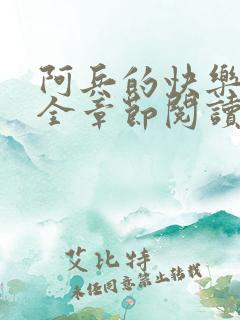 阿兵的快樂
全章節閱讀
艾比特
未經同意禁止轉載